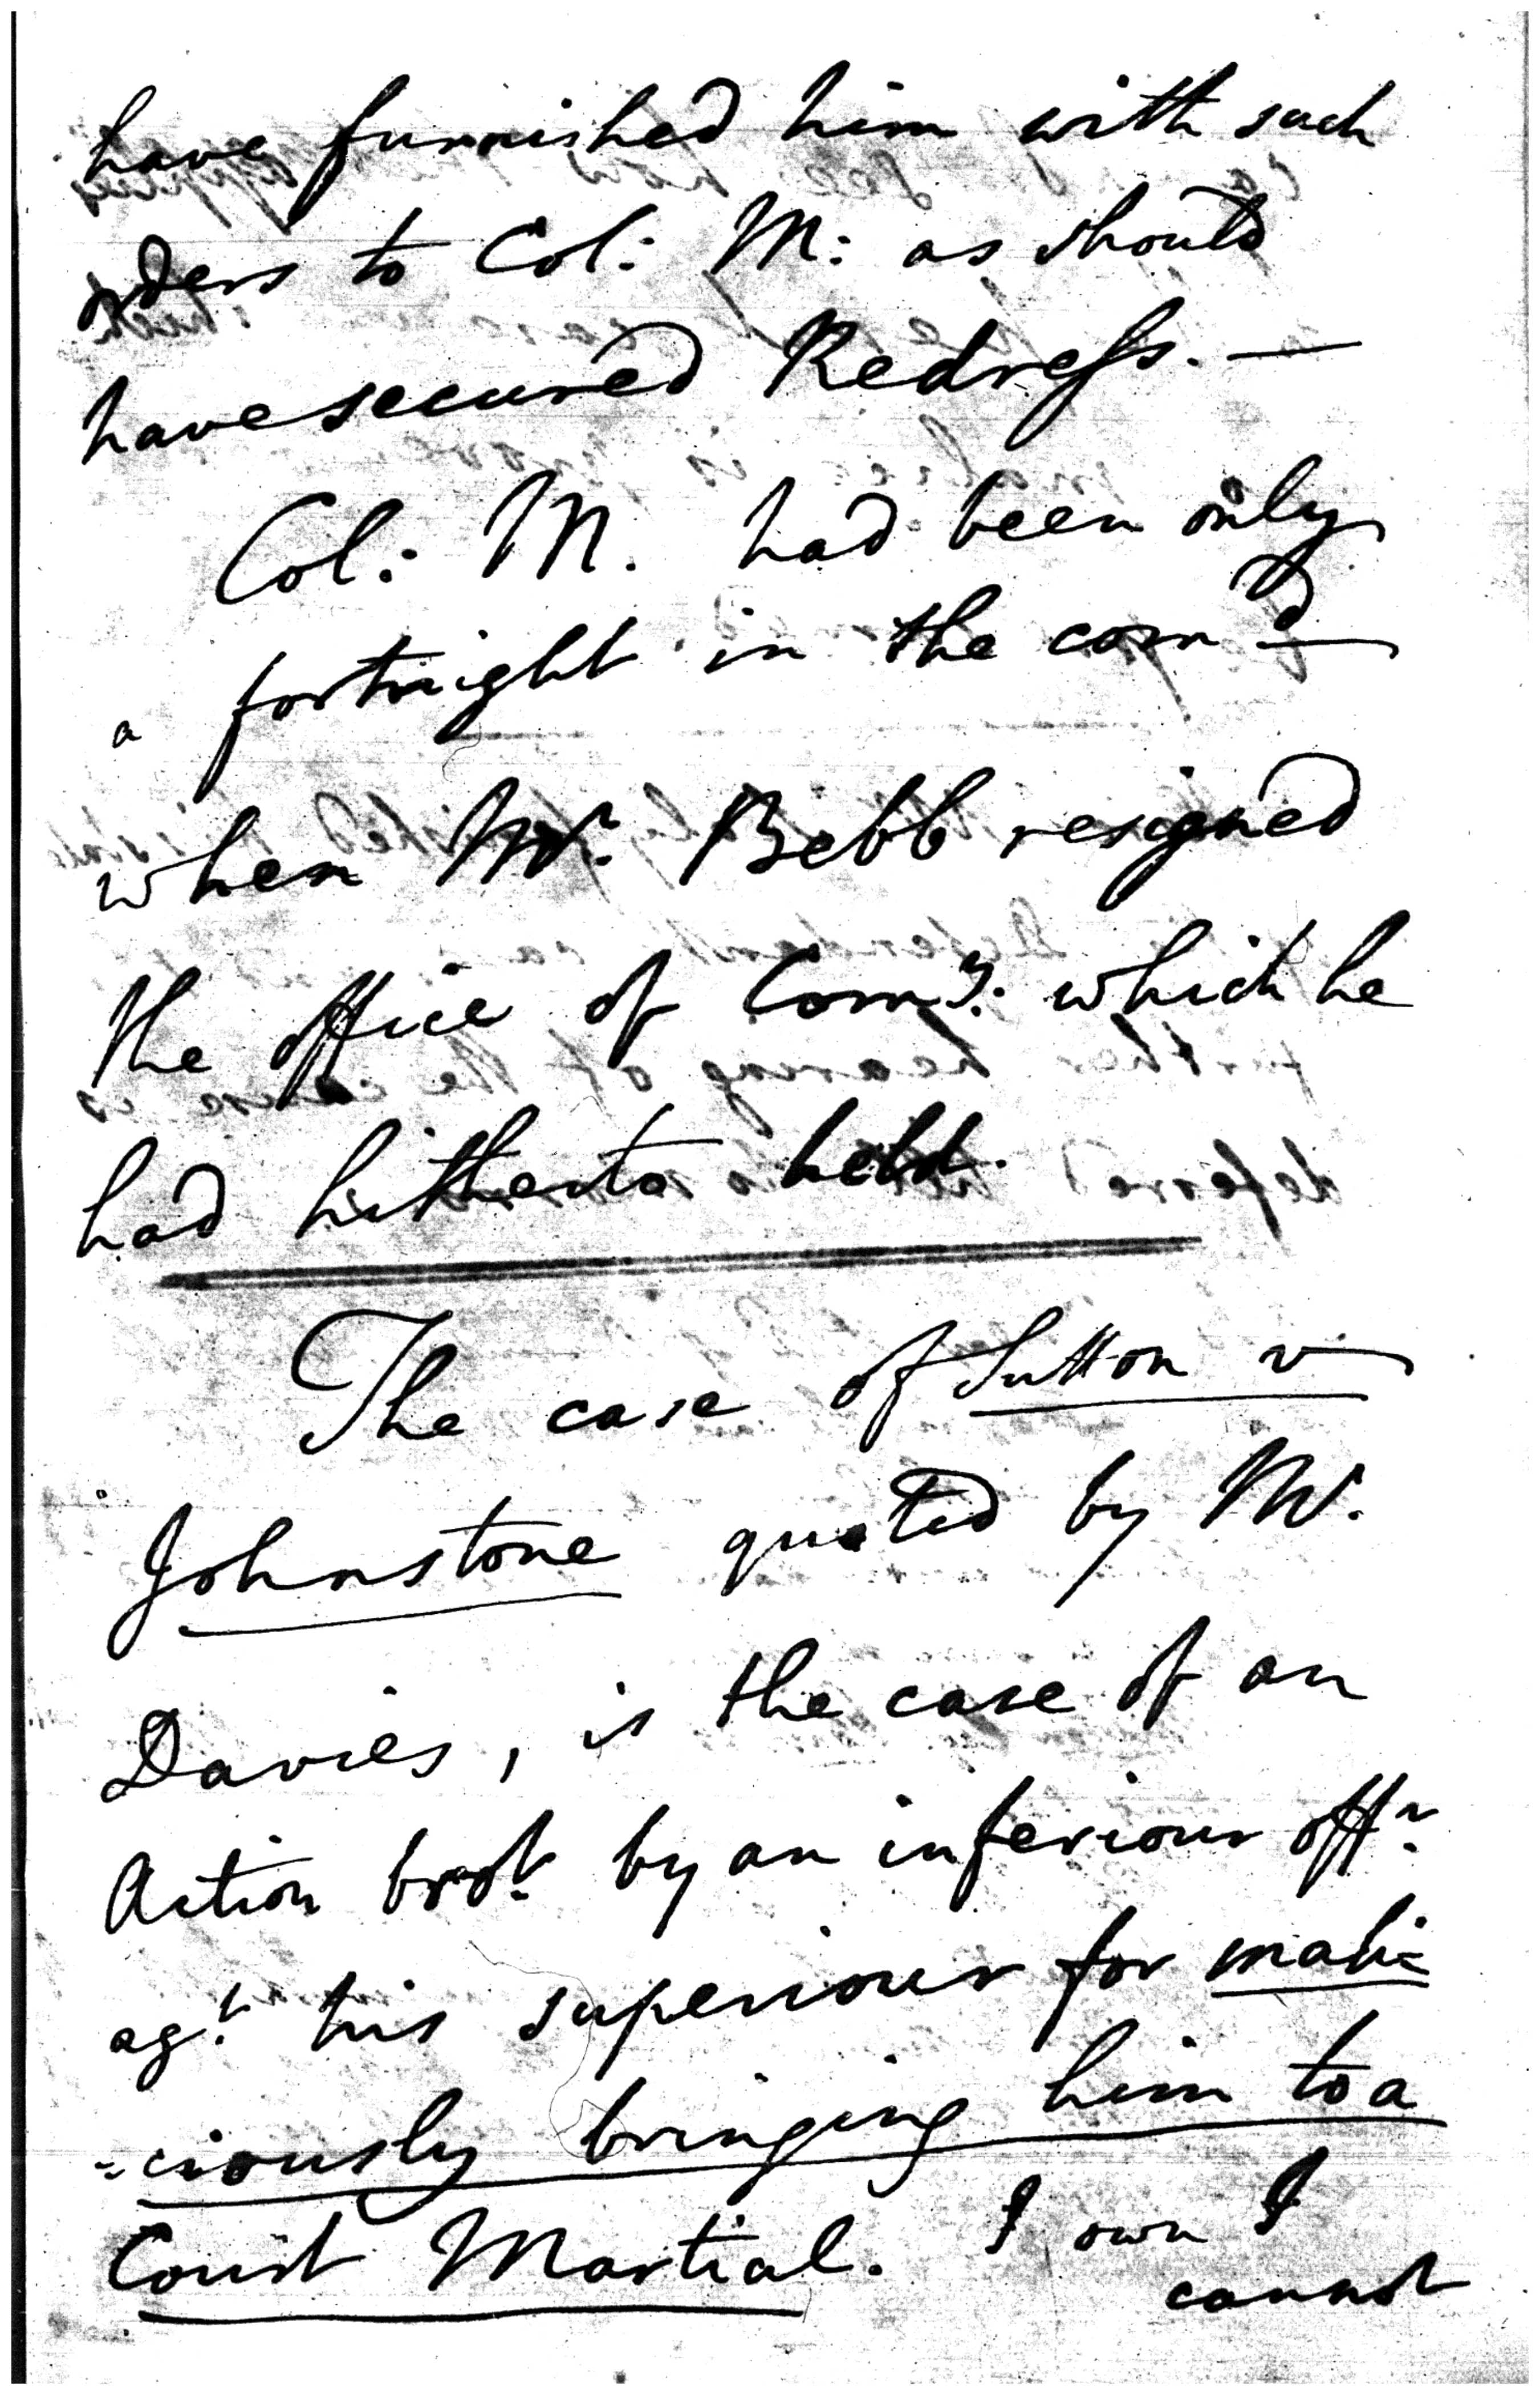 have furnished him with such
orders to Col: M: as should
have secured Redress. —
Col: M. had been only
a fortnight in the comd
when Mr. Bebb resigned
the office of Comy. which he
had hitherto held.
The case of Sutton v
Johnstone quoted by Mr.
Davies, is the case of an
Action brot. by an inferiour offr.
agt. his superiour for mali=
=ciously bringing him to a
Court Martial. I own I
cannot